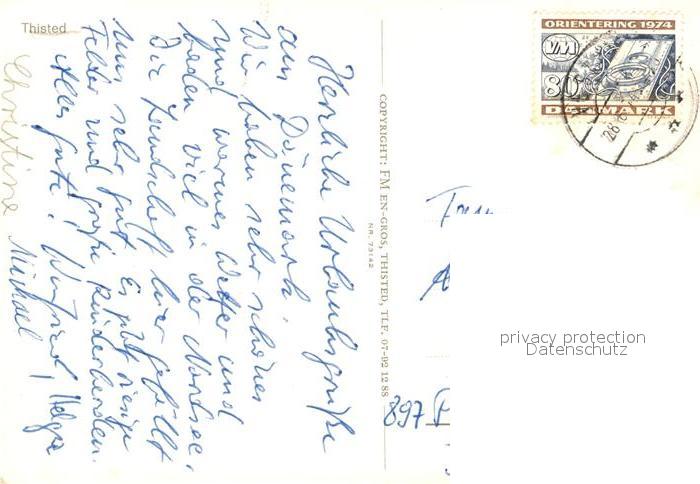 Thisted
Herzliche Urlaubsgrüße
aus Dänemark.
Wir haben sehr schönes
und warmes Wetter und
baden viel in der Nordsee.
Die Landschaft hier gefällt
uns sehr gut. Es gibt riesige
Felder und große Rinderherden.
Alles Gute! Winfried, Helga
Michael
Christine
COPYRIGHT: FM EN-GROS, THISTED, TLF. 07-92 12 88
NR. 73142
ORIENTERING 1974
VM
80
DANMARK
897
privacy protection
Datenschutz